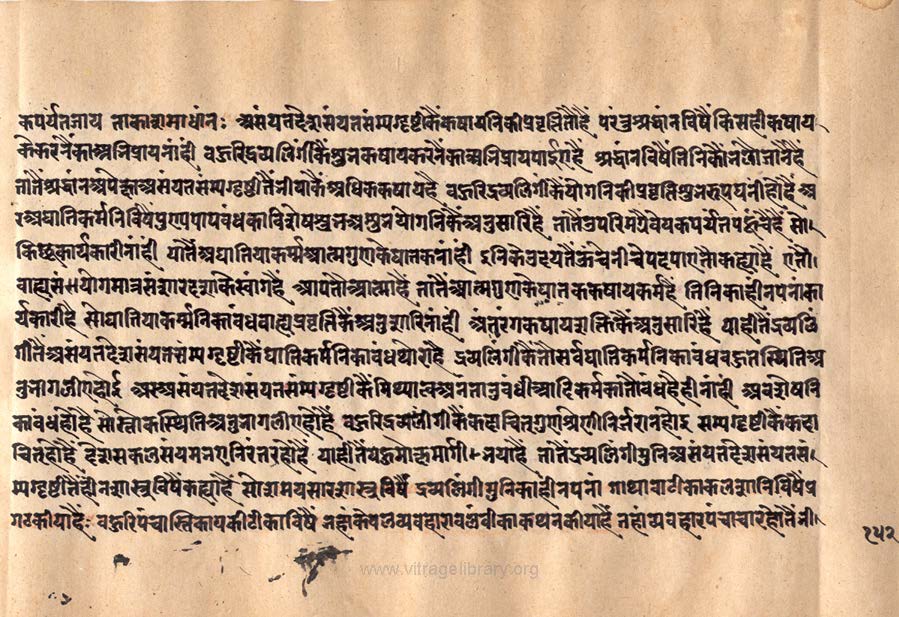 कपर्यंतजाय ताकासमाधान: असंयतदेशसंयतसम्यग्दृष्टीकैंकषायनिकीप्रवृत्तितौहै परंतुश्रद्धानविषैंकिसहीकषाय
केकरनैंकाअभिप्रायनांही बहुरिद्रव्यलिंगीकैंशुभकषायकरनैंकाअभिप्रायपाईएहै श्रद्धानविषैंतिनिकौंभलेजांनैंहै
तातैंश्रद्धानअपेक्षाअसंयतसम्यग्दृष्टीतैंभीयाकैंअधिककषायहै बहुरिद्रव्यलिंगीकैंयोगनिकीप्रवृत्तिशुभरूपघनीहोहैं अ
रअघातिकर्मनिविषैंपुण्यपापबंधकाविशेषशुभअशुभयोगनिकैंअनुसारिहै तातैंउपरिमग्रैवेयकपर्यंतपहुंचैहैं सो।
किछूकार्यकारीनांही यातैंअघातियाकर्म्मआत्मगुणकेघातकनांही इनिकेउदयतैंऊंचेनीचेपदपाएतौकहाहैं एतौ।
बाह्यसंयोगमात्रसंसारदशाकेस्वांगहैं आपतौआत्माहैं तातैंआत्मगुणकेघातककषायकर्महैं तिनिकाहीनपनांका
र्यकारीहै सोघातियाकर्म्मनिकाबंधबाह्यप्रवृत्तिकैंअनुसारिनांही अंतरंगकषायशक्तिकैंअनुसारिहै याहीतैंद्रव्यलिं
गीतैंअसंयतदेशसंयतसम्यग्दृष्टीकैंघातिकर्मनिकाबंधथोराहै द्रव्यलिंगीकैंतौसर्वघातिकर्मनिकाबंधबहुतस्थितिअ
नुभागलीएहोइ अरअसंयतदेशसंयतसम्यग्दृष्टीकैंमिथ्यात्वअनंतानुबंधीआदिकर्मकातौबंधहैहीनांही अवशेषनि
काबंधहोहै सोस्तोकस्थितिअनुभागलीएहोहैं बहुरिद्रव्यलिंगीकैंकदाचितगुणश्रेणीनिर्जरानहोइ सम्यग्दृष्टीकैंकदा
चितहोहै देशसकलसंयमभएनिरंतरहोहै याहीतैंयहुमोक्षमार्गीभयाहै तातैंद्रव्यलिंगीमुनिअसंयतदेशसंयतसं
म्यग्दृष्टीतैंहीनशास्त्रविषैंकह्याहै सोसमयसारशास्त्रविषैं द्रव्यलिंगीमुनिकाहीनपनां गाथावाटीकाकलशानिविषैंप्र
गटकीयाहै: बहुरिपंचास्तिकायकीटीकाविषैं जहांकेवलव्यवहारावलंबीकाकथनकीयाहैं तहांव्यवहारपंचाचारहोतैंभी।
१५२
www.vitragelibrary.org